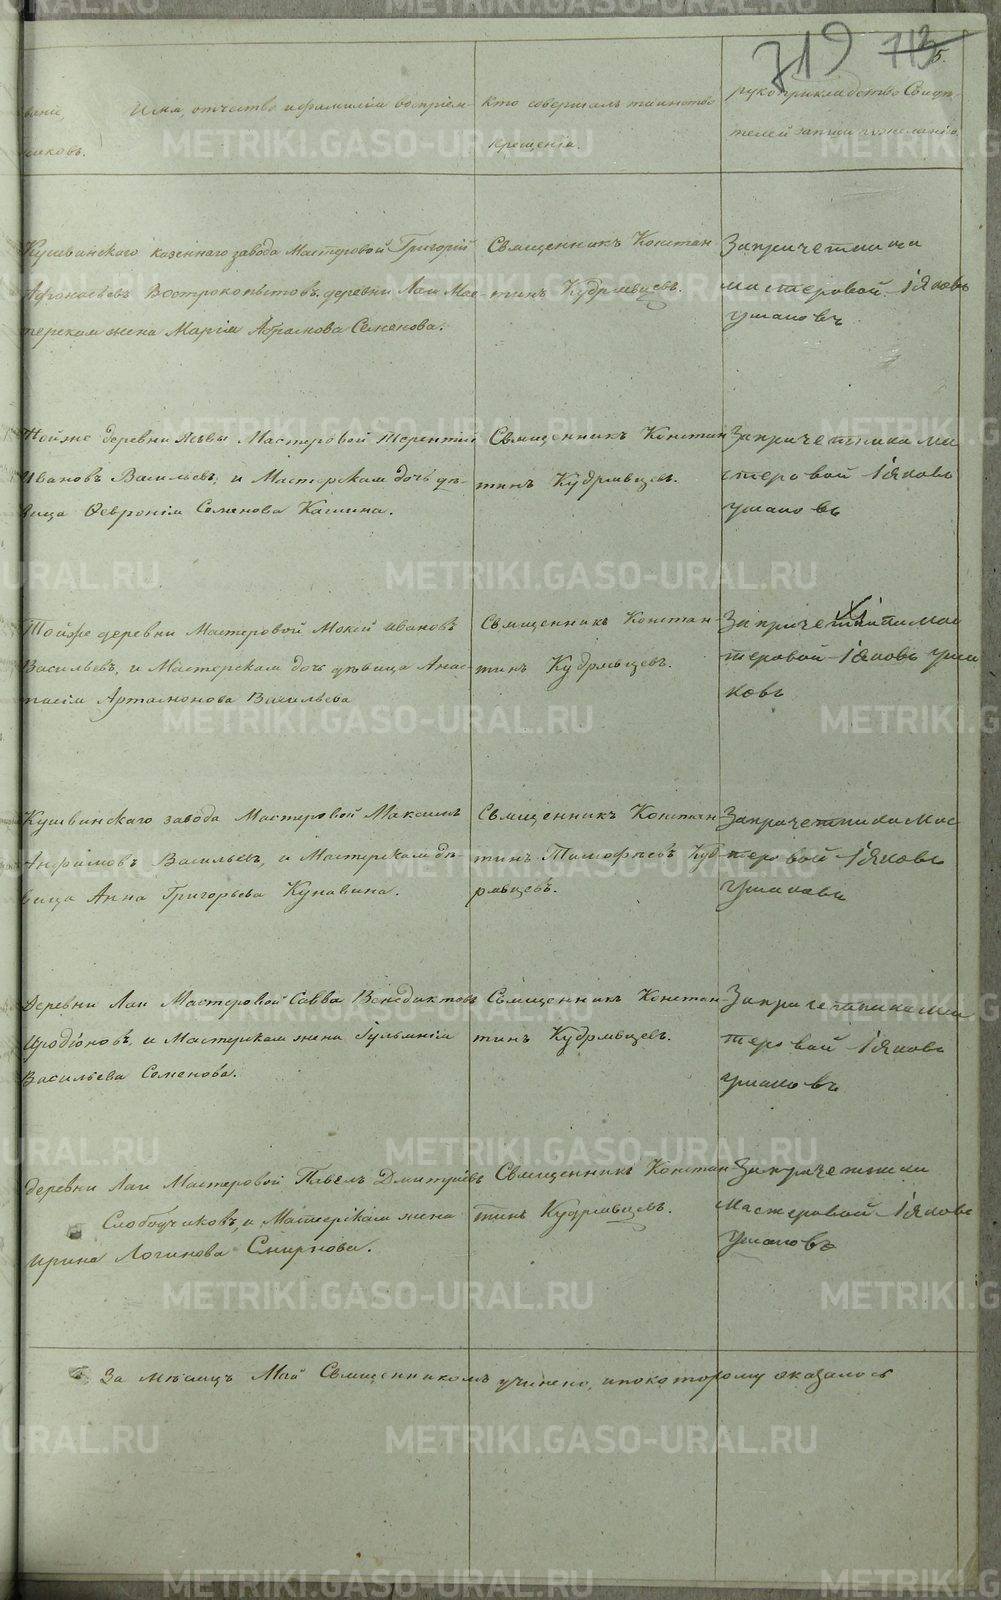 719 713
5.
Имя, отчество и фамилія воспріем-
никовъ.
Кто совершалъ таинство
крещенія.
рукоприкладство Свидѣ-
телей записи по желанію.
Кушвинскаго казеннаго завода Мастеровой Григорій
Афонасьевъ Вострокопытовъ, деревни Лаи Мас-
терская жена Марія Абрамова Семенова.
Священникъ Констан-
тинъ Кудрявцевъ.
Запричетника
мастеровой Іяковъ
Ушаковъ
Тойже деревни Мастеровой Терентій
Ивановъ Васильевъ, и Мастерская дочь дѣ-
вица Февронія Семенова Кашина.
Священникъ Констан
тинъ Кудрявцевъ.
Запричетника ма
стеровой Іяковъ
Ушаковъ
Тойже деревни Мастеровой Мокей Ивановъ
Васильевъ, и Мастерская дочь дѣвица Анас-
тасія Артамонова Васильева
Священникъ Констан-
тинъ Кудрявцевъ.
Запричетника мас
теровой Іяковъ Уша
ковъ
Кушвинскаго завода Мастеровой Максимъ
Анфимовъ Васильевъ, и Мастерская дѣ-
вица Анна Григорьева Кунавина.
Священникъ Констан-
тинъ Тимофеевъ Куд-
рявцевъ.
Запричетника мас
теровой Іяковъ
Ушаковъ
Деревни Лаи Мастеровой Савва Венедиктовъ
Иродіоновъ, и Мастерская жена Гульянія
Васильева Семенова.
Священникъ Констан-
тинъ Кудрявцевъ.
Запричетника мас
теровой Іяковъ
Ушаковъ
деревни Лаи Мастеровой Павелъ Дмитріевъ
Слободчиковъ, и Мастерская жена
Ирина Логинова Смирнова.
Священникъ Констан
тинъ Кудрявцевъ.
Запричетника
мастеровой Іяковъ
Ушаковъ
За мѣсяцъ Май Священникомъ учинено, и по которому оказалось
METRIKI.GASO-URAL.RU